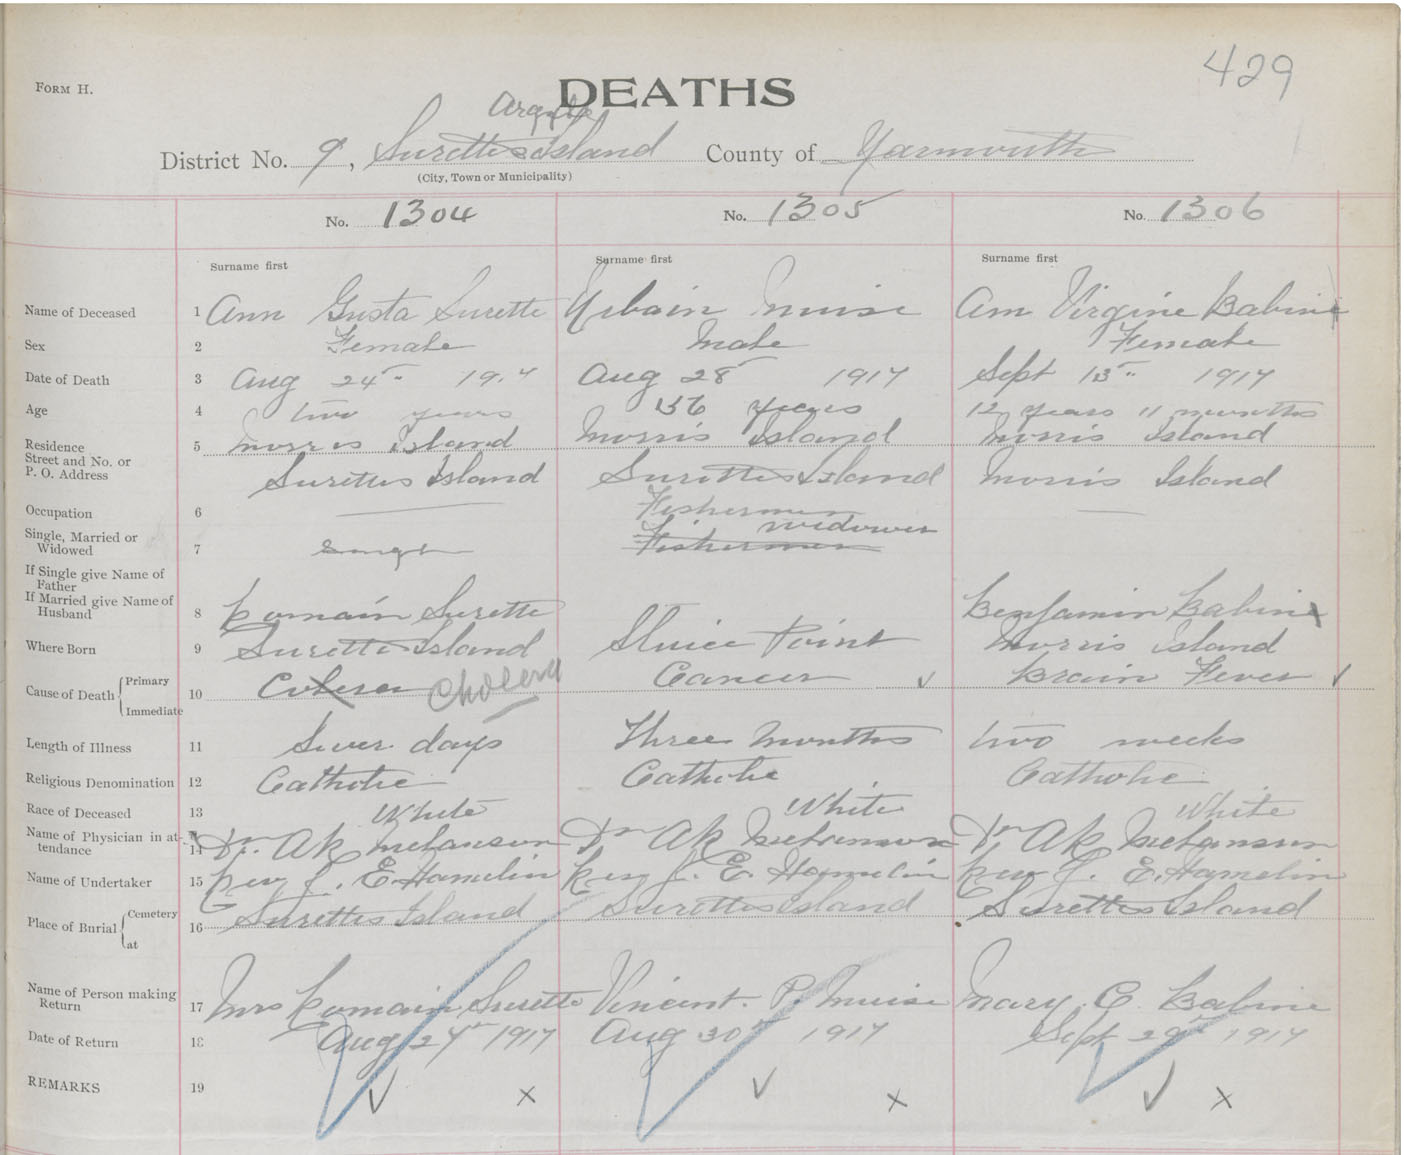 429
FORM H.
DEATHS
Argyle
District No. 9, Surettes Island County of Yarmouth
(City, Town or Municipality)
No. 1304 No. 1305 No. 1306
Surname first Surname first Surname first
Name of Deceased 1 Ann Gusta Surette Urbain Muise Ann Virgine Babine
Sex 2 Female Male Female
Date of Death 3 Aug 24th 1917 Aug 28 1917 Sept 13th 1917
Age 4 two years 56 years 12 years 11 months
Residence 5 Morris Island Morris Island Morris Island
Street and No. or
P. O. Address Surettes Island Surettes Island Morris Island
Occupation 6 Fishermen
Single, Married or
Widowed 7 Single Fishermen widower
If Single give Name of
Father
If Married give Name of
Husband 8 Romain Surette Benjamin Babine
Where Born 9 Surettes Island Sluice Point Morris Island
Cause of Death Primary Immediate 10 Cholera Cancer Brain Fever
Length of Illness 11 days Three Months two weeks
Religious Denomination 12 Catholic Catholic Catholic
Race of Deceased 13 White White White
Name of Physician in at-
tendance 14 Dr. AR Melanson Dr AR Melanson Dr AR Melanson
Name of Undertaker 15 Rev J. E. Hamelin Rev J. E. Hamelin Rev J. E. Hamelin
Place of Burial Cemetery at 16 Surettes Island Surettes Island Surettes Island
Name of Person making
Return 17 Mrs Romain Surette Vincent. P. Muise Mary. C. Babine
Date of Return 18 Aug 27th 1917 Aug 30th 1917 Sept 29th 1917
REMARKS 19